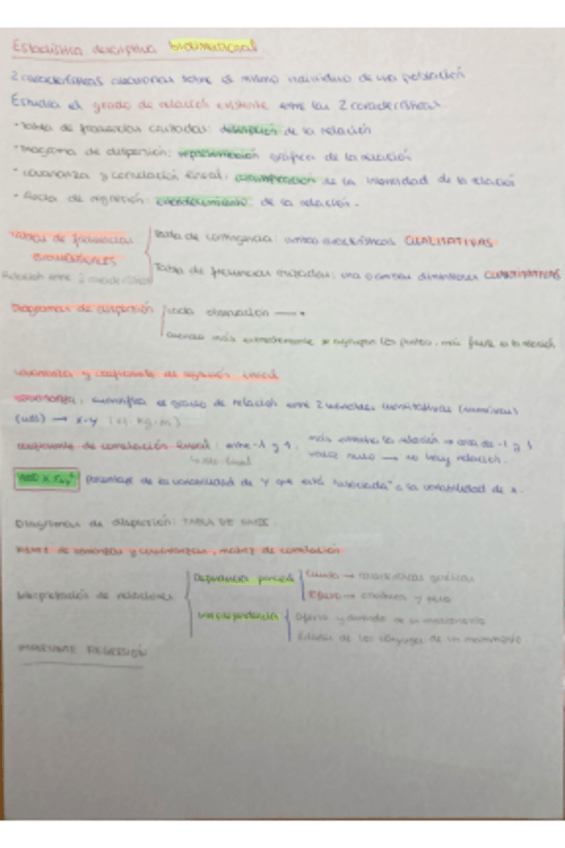 Estadística descriptiva bidimensional
2 características cualesquiera sobre el mismo individuo de una población
Estudia el grado de relación existente entre las 2 características.
· Tabla de frecuencias cruzadas: descripción de la relación
· Diagrama de dispersión: representación gráfica de la relación
· Covarianza y correlación lineal: cuantificación de la intensidad de la relación
· Recta de regresión: entendimiento de la relación.
Tablas de frecuencias BIDIMENSIONALES
Relación entre 2 modalidades
Tabla de contingencia: ambas características CUALITATIVAS
Tabla de frecuencias cruzadas: una o ambas dimensiones CUANTITATIVAS
Diagramas de dispersión
cada observación → •
cuando más estrechamente se agrupen los puntos, más fuerte es la relación
Covarianza y coeficiente de regresión lineal
covarianza: cuantifica el grado de relación entre 2 variables cuantitativas (numéricas)
(uds) → x·y (ej. kg·m)
coeficiente de correlación lineal: entre -1 y 1
más estrecha la relación → cerca de -1 y 1
valor nulo → no hay relación.
porcentaje de la variabilidad de Y que está "asociada" a la variabilidad de x.
Diagramas de dispersión: TABLA DE
Matriz de varianzas y covarianzas, matriz de correlación
Interpretación de relaciones
Dependencia parcial
→ características genéticas
→ estatura y peso
Interdependencia
Oferta y demanda de un
Edades de los cónyuges de un matrimonio
REGRESIÓN